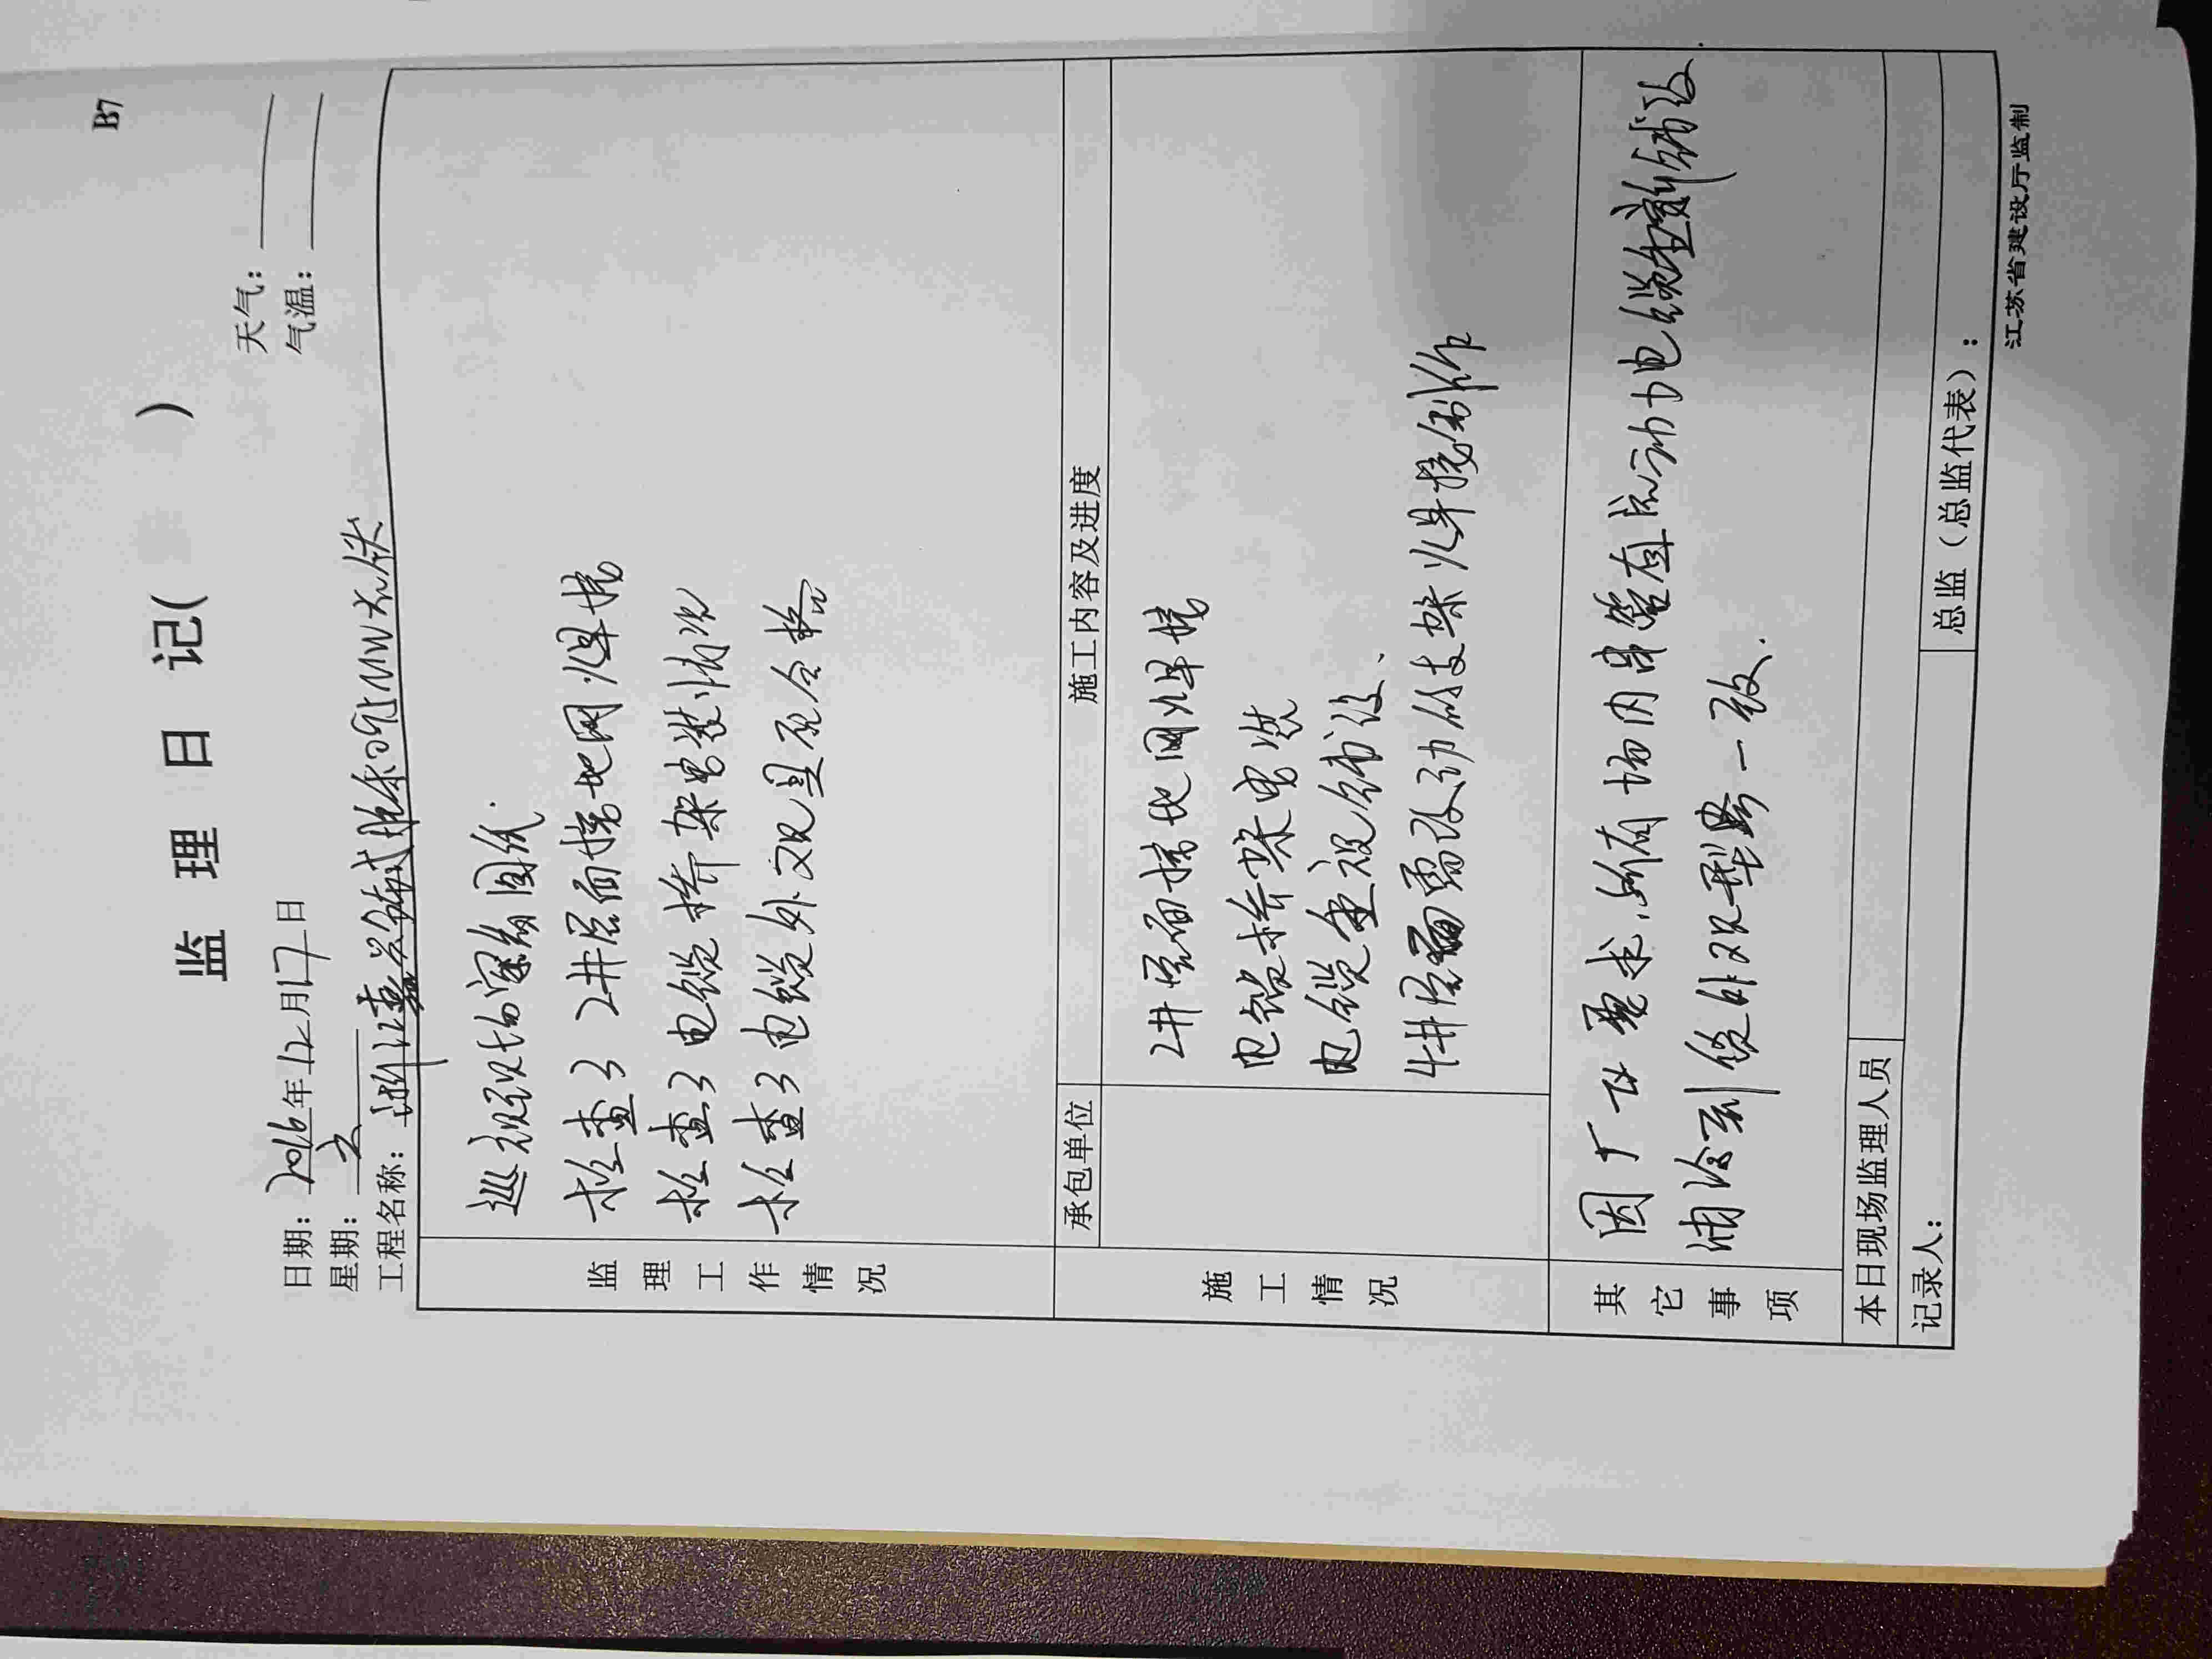 B7
监 理 日 记( )
日期:2016年12月17日 天气:
星期: 六 气温:
工程名称:浙江嘉兴 式 MW光伏
监理工作情况
巡视现场审图纸.
检查了2#屋面接地网焊接
检查了电缆桥架安装情况
检查了电缆外观是否合格
施工情况
承包单位
施工内容及进度
2#屋面接地网焊接
电缆桥架安装
电缆敷设铺设、
4#屋面需改动的支架焊接制作
其它事项
因厂方要求,所有场内 动力电缆重新铺设
一致.
本日现场监理人员
记录人: 总监(总监代表):
江苏省建设厅监制